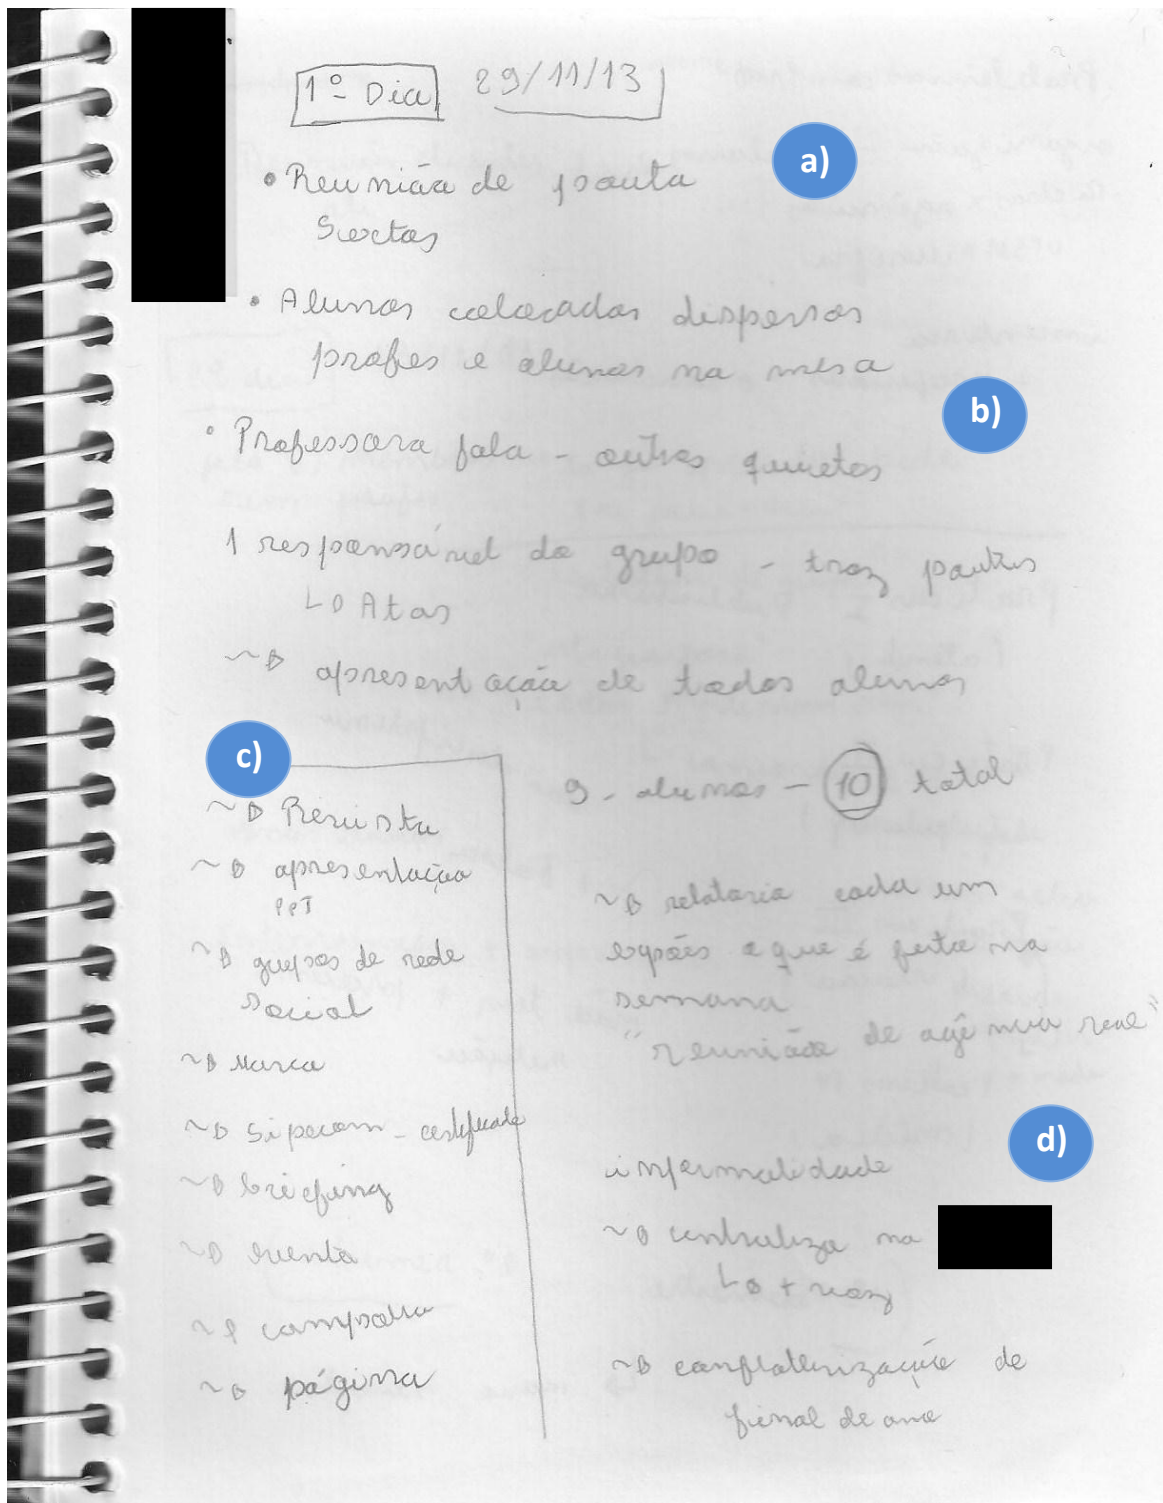 1º Dia 29/11/13
a)
• Reunião de pauta
Sextas
• Alunos colocados dispersos
profes e alunos na mesa
b)
• Professora fala - outros quietos
1 responsável do grupo - traz pautas
Atas
apresentação de todos alunos
c)
Revista
apresentação
PPT
grupos de rede
social
Marca
Sipecom - certificado
briefing
evento
página
9 - alunos - 10 total
relatoria cada um
expões o que é feito na
semana
"reunião de agência real"
d)
informalidade
centraliza na
+ voz
confraternização de
final de ano